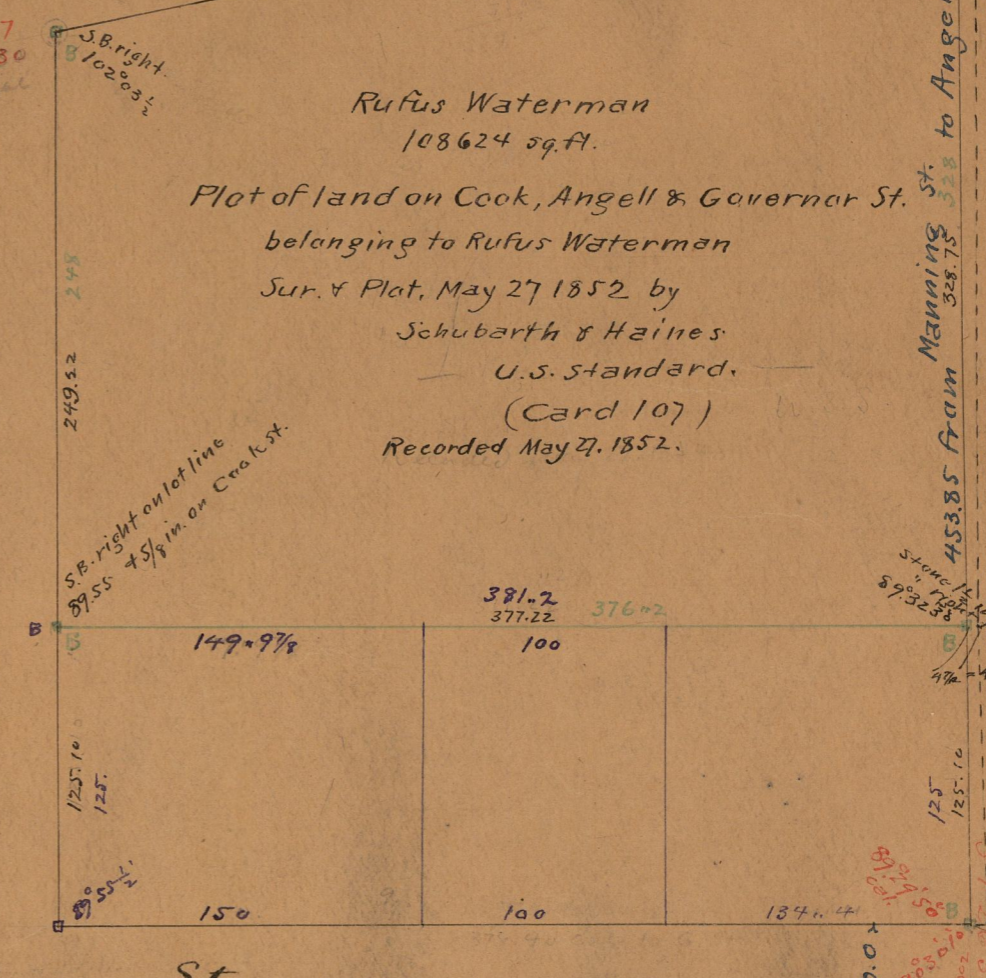 S.B. right.
102°03½
B
Rufus Waterman
108624 sq.ft.
Plat of land on Cook, Angell & Governor St.
belonging to Rufus Waterman
Sur. & Plat. May 27 1852 by
Schubarth & Haines
U.S. Standard.
(Card 107)
Recorded May 27. 1852.
248
249.52
S.B. right on lot line
89.55 +5/8 in. on Cook St.
453.85 from Manning St. 328 to Angel
328.75
381..2
377.22
376..2
B
B
149..9⅞
100
B
125.10
125.
125
125.10
89°55½
150
100
134..4
89°29'50"
cal.
B
St